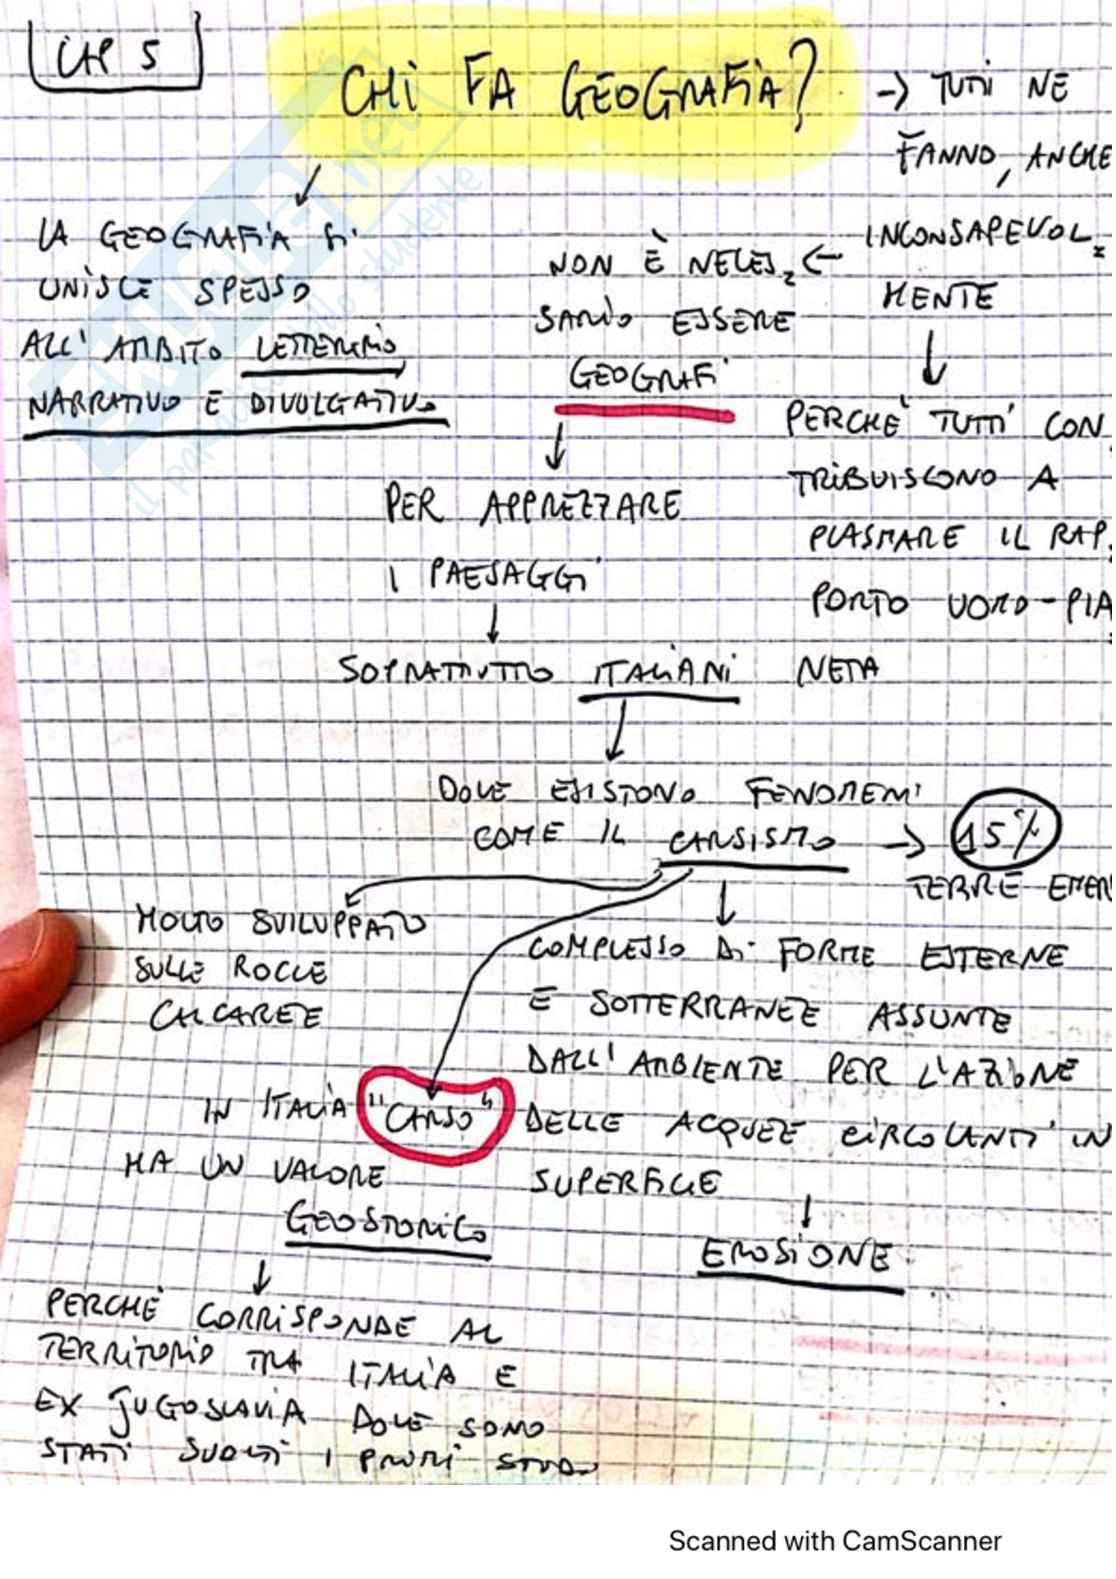 CAP 5
CHI FA GEOGRAFIA?
→ TUTTI NE
FANNO, ANCHE
INCONSAPEVOL=
MENTE
PERCHÈ TUTTI CON
TRIBUISCONO A
PLASMARE IL RAP
PORTO UOMO-PIA
NETA
LA GEOGRAFIA SI
UNISCE SPESSO
ALL'AMBITO LETTERARIO,
NARRATIVO E DIVULGATIVO
NON È NECES= ←
SARIO ESSERE
GEOGRAFI
PER APPREZZARE
I PAESAGGI
SOPRATTUTTO ITALIANI
DOVE ESISTONO FENOMENI
COME IL CARSISMO → 15%
TERRE EMER
MOLTO SVILUPPATO
SULLE ROCCE
CALCAREE
COMPLESSO DI FORME ESTERNE
E SOTTERRANEE ASSUNTE
DALL'AMBIENTE PER L'AZIONE
DELLE ACQUE CIRCOLANTI IN
SUPERFICIE
EROSIONE
IN ITALIA "CARSO"
HA UN VALORE
GEOSTORICO
PERCHÈ CORRISPONDE AL
TERRITORIO TRA ITALIA E
EX JUGOSLAVIA DOVE SONO
STATI SVOLTI I PRIMI STUDI
Scanned with CamScanner